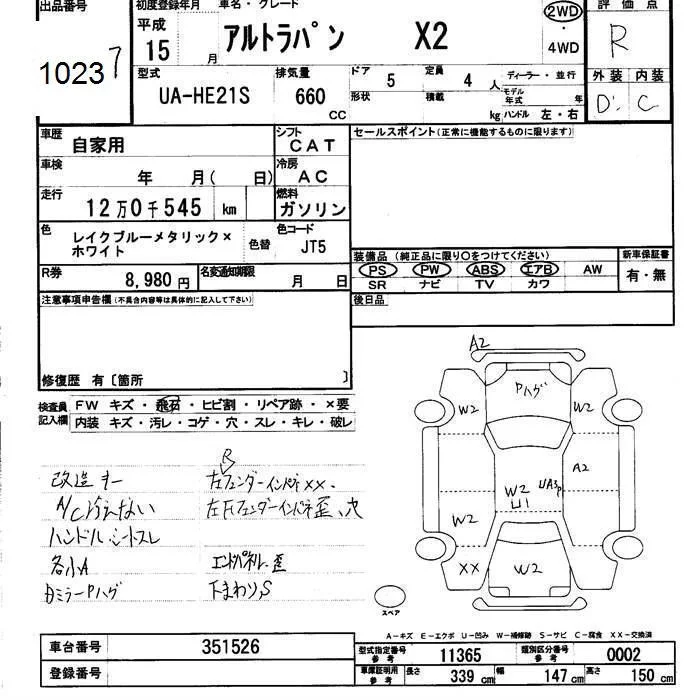 出品番号
10237
初度登録年月
平成
15 月
車名・グレード
アルトラパン X2
2WD
・
4WD
評価点
R
型式
UA-HE21S
排気量
660
CC
ドア
5
定員
4
人
形状
積載
kg
ディーラー・並行
モデル年式 年
ハンドル 左・右
外装 内装
D' C
車歴
自家用
シフト
CAT
車検
年 月( 日)
冷房
AC
走行
12万0千545 km
燃料
ガソリン
色
レイクブルーメタリック×
ホワイト
色替
色コード
JT5
R券
8,980 円
名変通知期限
月 日
セールスポイント(正常に機能するものに限ります)
装備品 (純正品に限り○をつけてください)
PS PW ABS エアB AW
SR ナビ TV カワ
新車保証書
有・無
後日品
注意事項申告欄(不具合内容等は具体的に記入して下さい)
修復歴 有〔箇所 〕
検査員
記入欄
FW キズ・飛石・ヒビ割・リペア跡・×要
内装 キズ・汚レ・コゲ・穴・スレ・キレ・破レ
改造キー
A/C冷えない
ハンドル、シートスレ
各小A
R
左フェンダーインパネXX、
エンドパネル歪
下まわりS
A2
Pハゲ
W2
W2
A2
W2
U1
W2
XX
W2
スペア
A-キズ E-エクボ U-凹み W-補修跡 S-サビ C-腐食 XX-交換済
車台番号
351526
登録番号
型式指定番号
参考
11365
類別区分番号
参考
0002
車庫証明用
参考
長さ
339 cm
幅
147 cm
高さ
150 cm